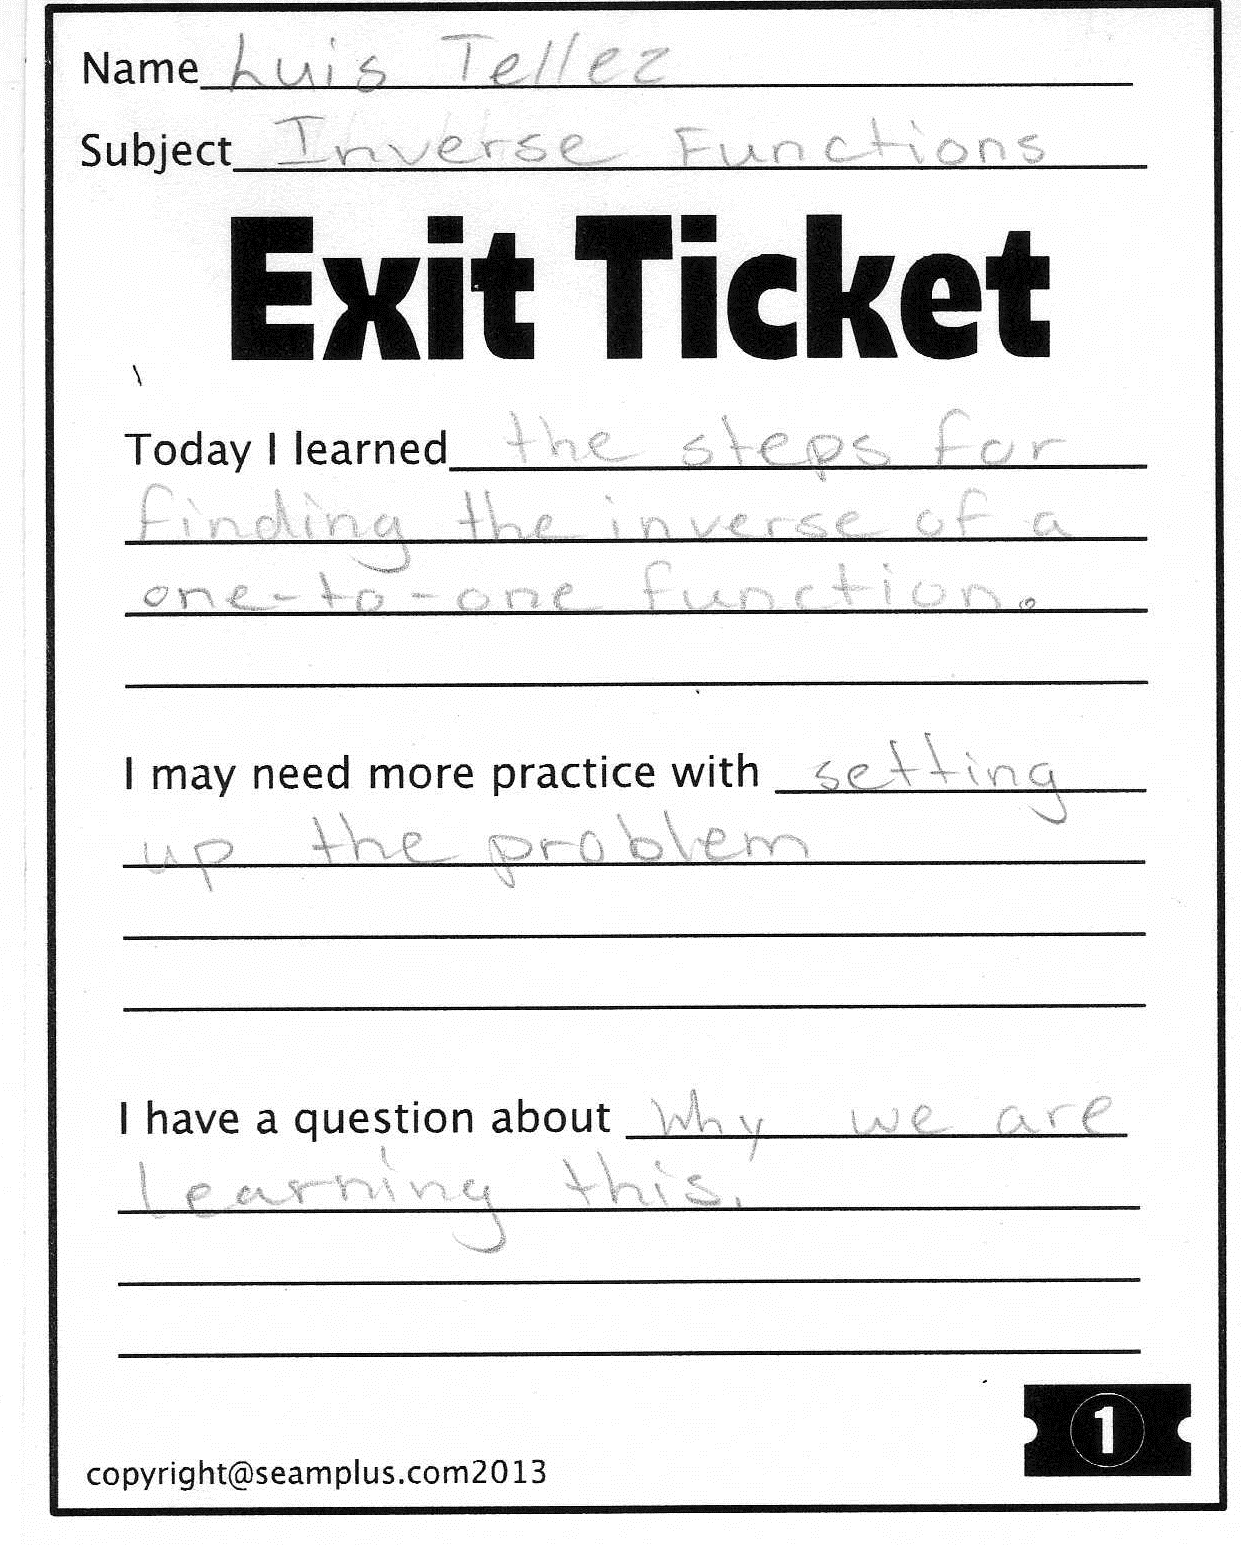 Name Luis Tellez
Subject Inverse Functions
Exit Ticket
Today I learned the steps for
finding the inverse of a
one-to-one function.
I may need more practice with setting
up the problem
I have a question about Why we are
learning this.
1
copyright@seamplus.com2013